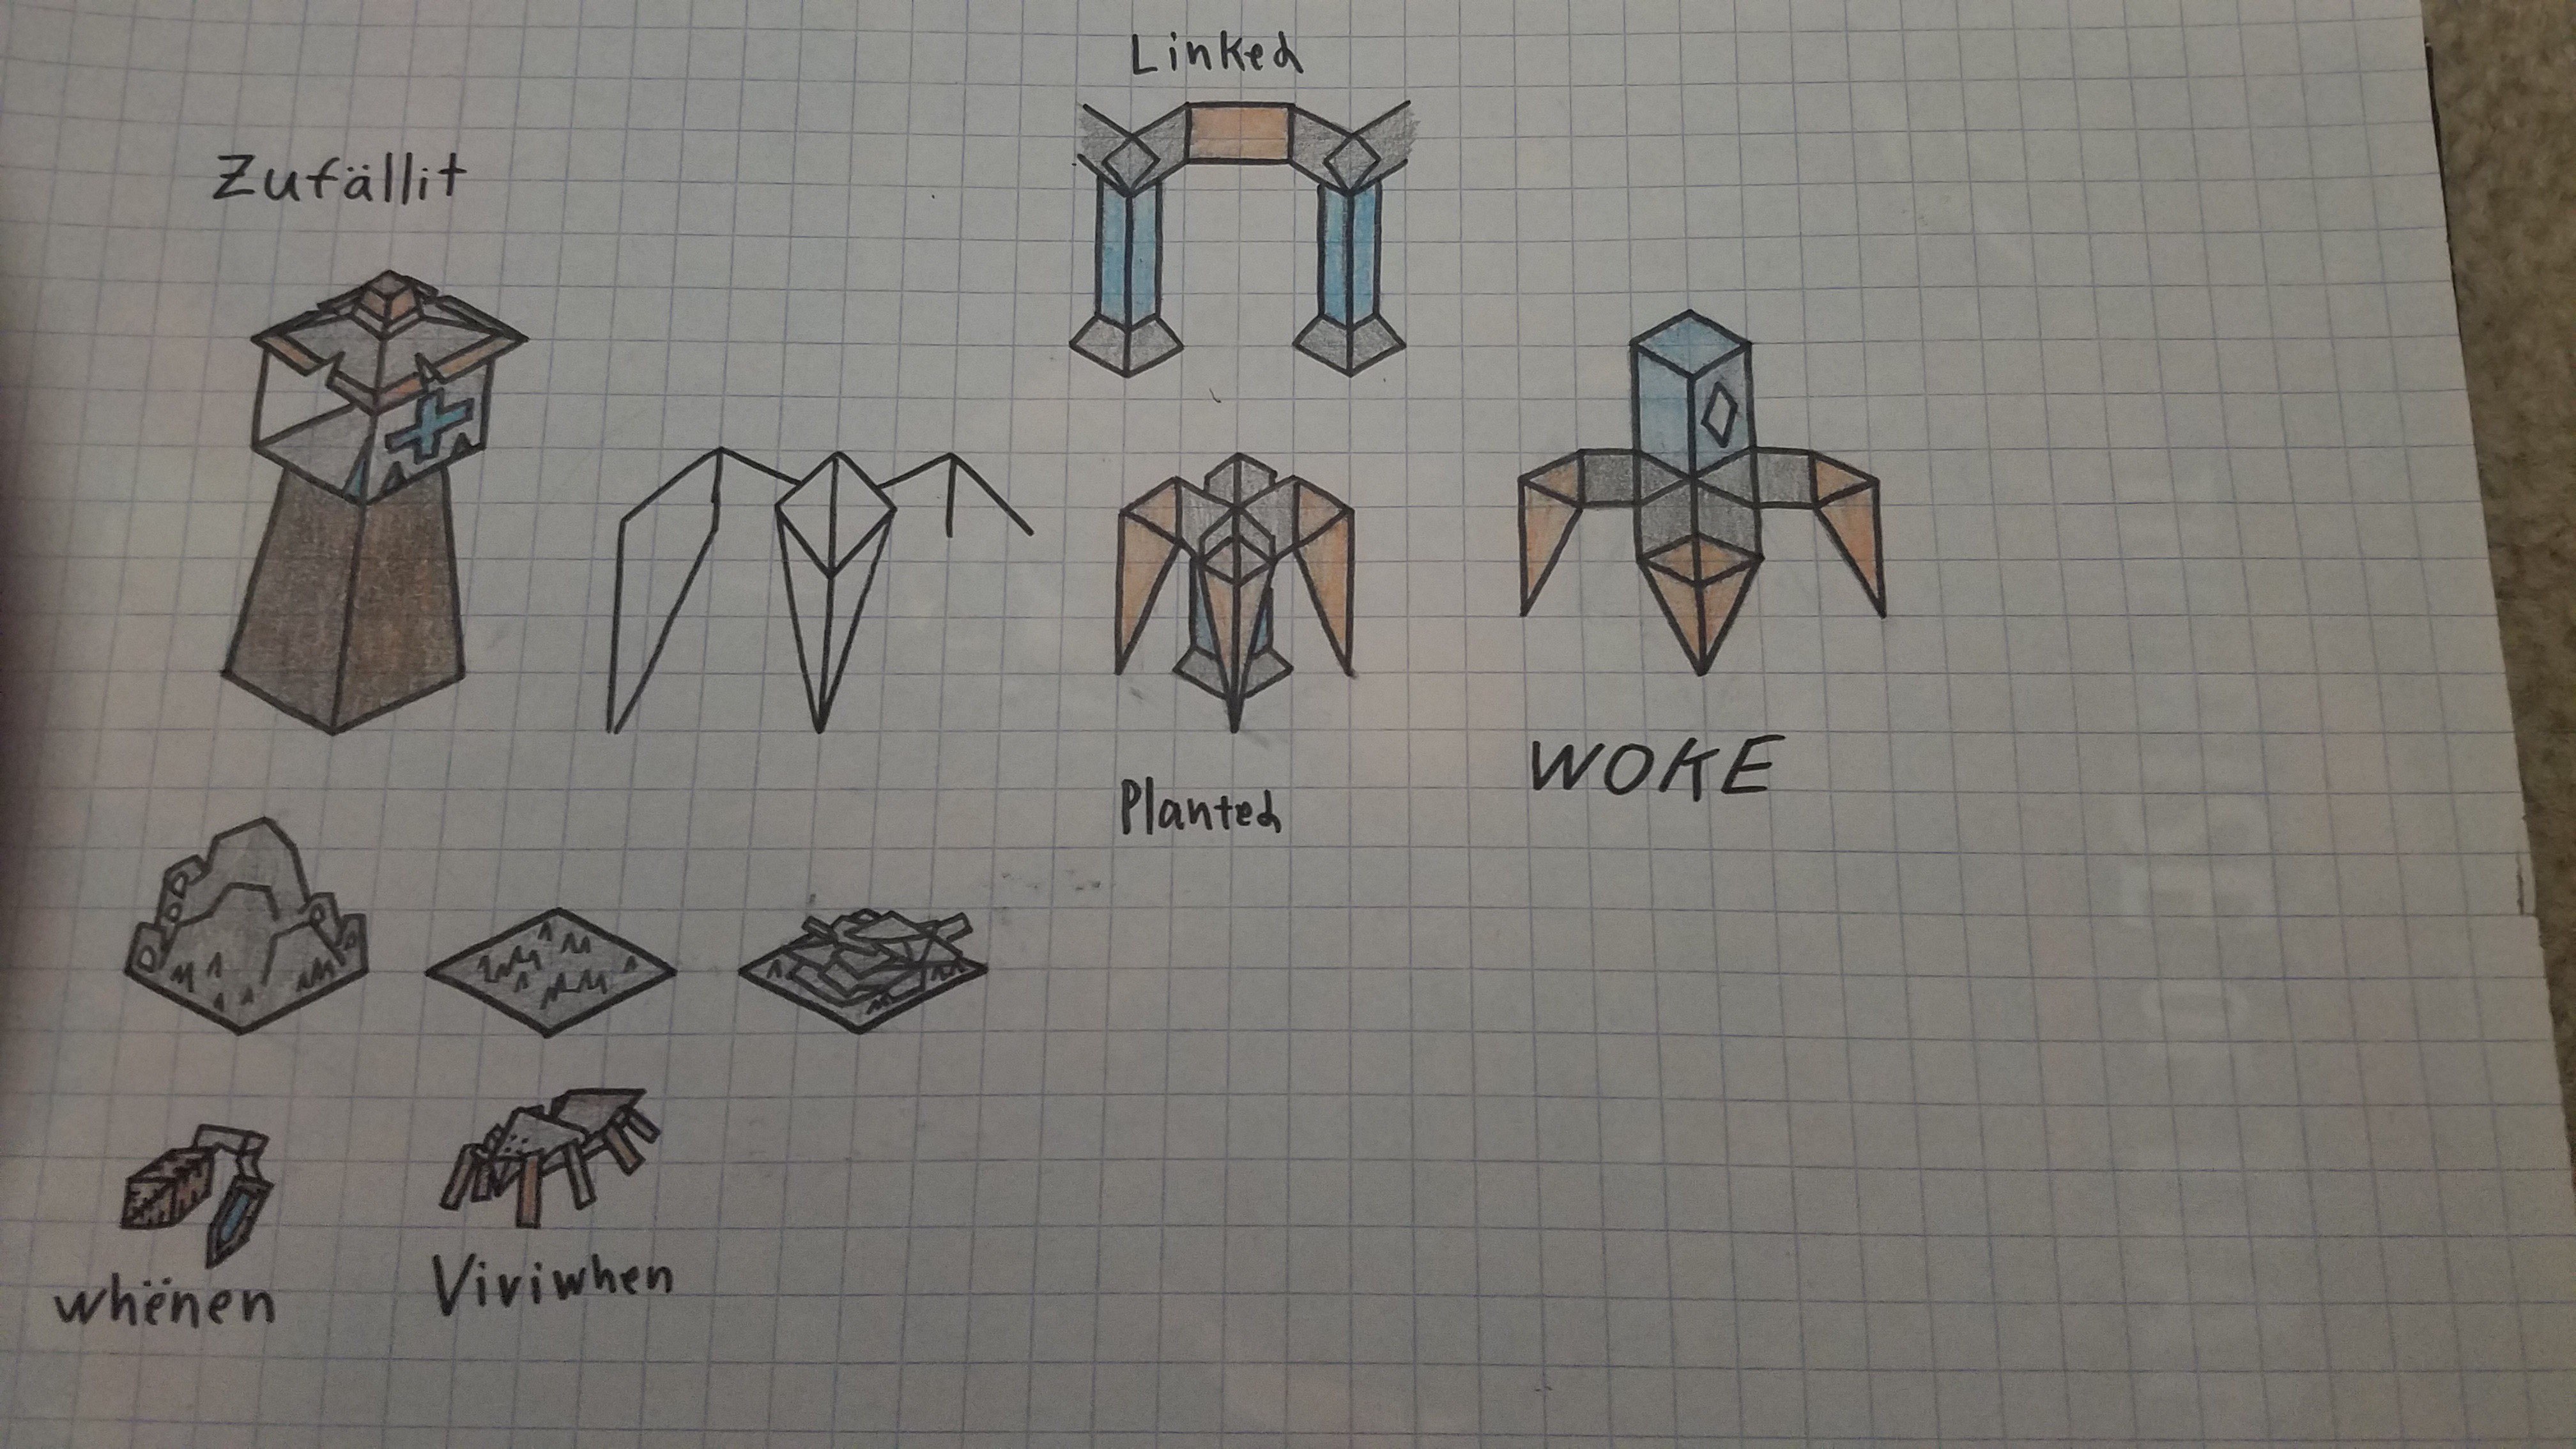 Linked
Zufällit
WOKE
Planted
whënen
Viviwhen